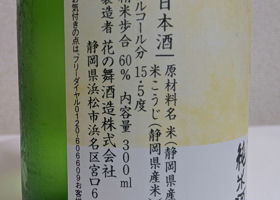 日本酒
原材料名 米(静岡県産
米こうじ(静岡県産米
アルコール分 15.5度
精米歩合 60% 内容量 300ml
製造者 花の舞酒造株式会社
静岡県浜松市浜名区宮口6
お気付きの点は、フリーダイヤル0120-606609お客様
純米酒